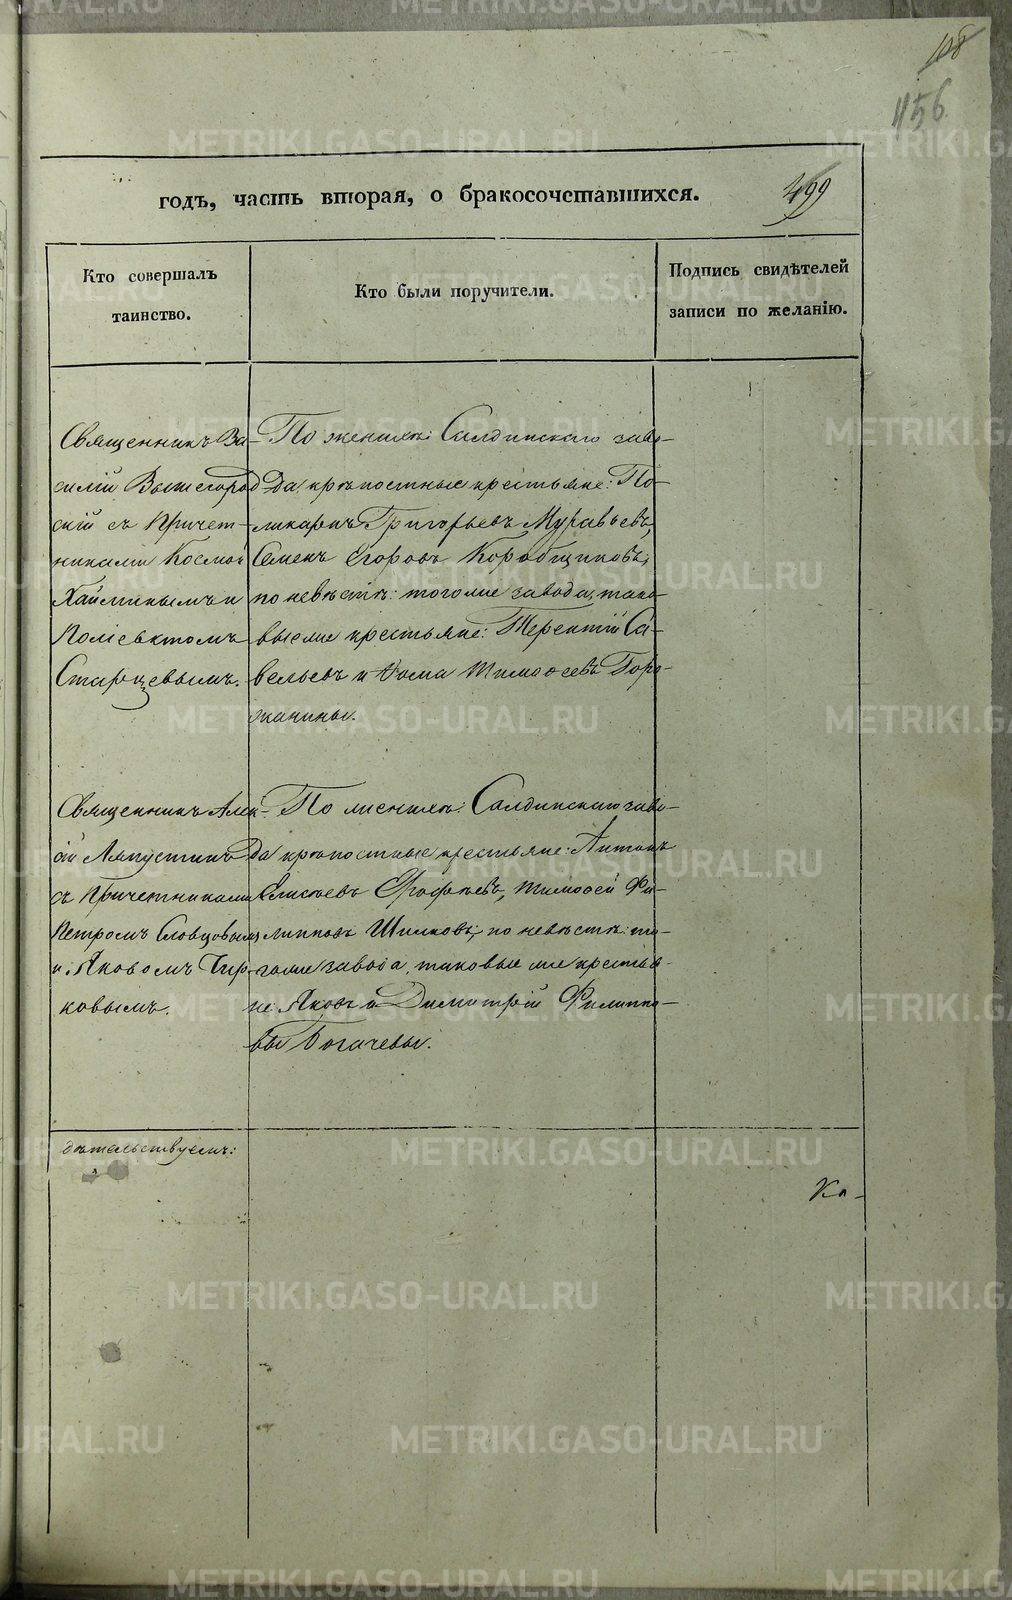 108
456
годъ, часть вторая, о бракосочетавшихся.
499
Кто совершалъ
таинство.
Кто были поручители.
Подпись свидѣтелей
записи по желанію.
Священникъ Ва-
силій Вышегород
скій съ Причет-
никами Космой
Хайминымъ и
Поліевктомъ
Старцевымъ.
По женихѣ: Салдинскаго заво-
да, крѣпостные крестьяне: По-
ликарпъ Григорьевъ Муравьевъ,
Семенъ Егоровъ Коробщиковъ;
по невѣстѣ: тогоже завода, тако-
выеже крестьяне: Терентій Са-
вельевъ и Ѳома Тимоѳеевъ Горо-
жанины.
Священникъ Алек-
сій Ляпустинъ
съ Причетниками
Петромъ Словцовымъ
и Яковомъ Чир-
ковымъ.
По женихѣ: Салдинскаго заво-
да крѣпостные крестьяне: Антонъ
Елисеевъ Ерофѣевъ, Тимоѳей Фи-
липповъ Шилковъ; по невѣстѣ: то-
гоже завода, таковые же крестья-
не: Яковъ и Димитрій Филиппо-
вы Богачевы.
дѣтельствуемъ:
METRIKI.GASO-URAL.RU